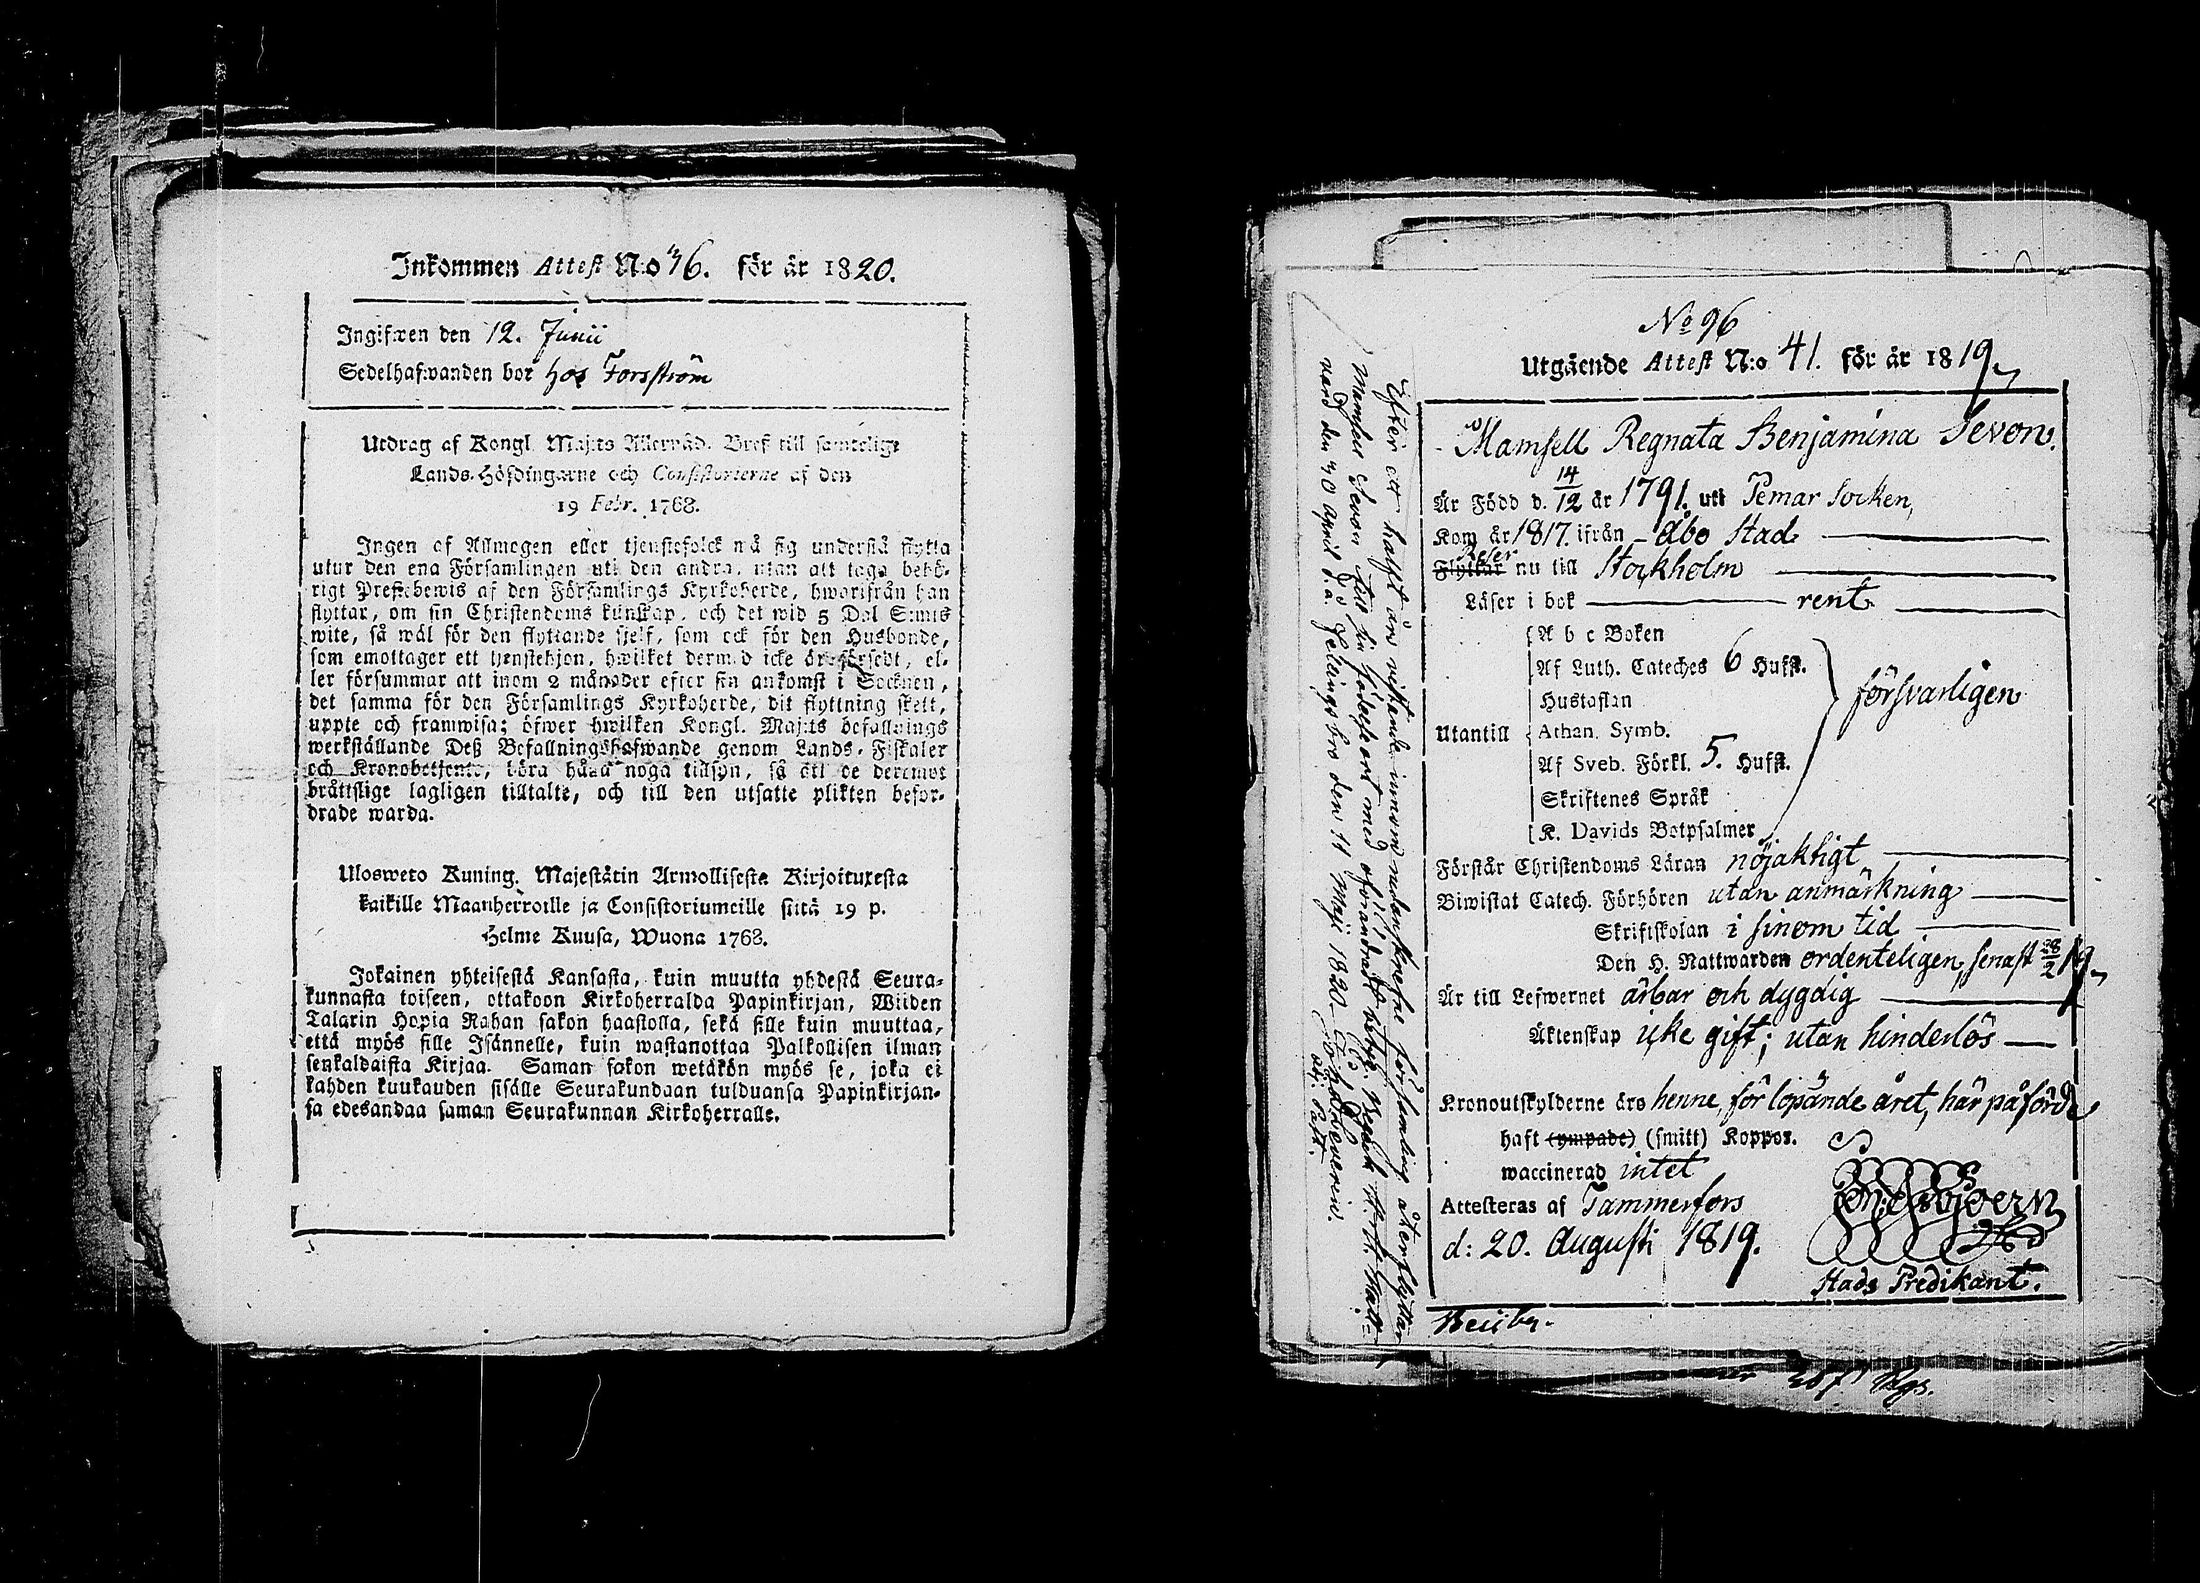 Inkommen Attest N:o 36. för år 1820.
Ingifwen den 12. Junii
Sedelhafwanden bor hos Forsström
Utdrag af Kongl. Maj:ts Allernåd. Bref till samtelige
Lands-Höfdingarne och Consistorierne af den
19 Febr. 1768.
Ingen af Allmogen eller tjenstefolck må sig understå flytta
utur den ena Församlingen uti den andra, utan att taga behö-
rigt Prestebewis af den Församlings Kyrkoherde, hworifrån han
flyttar, om sin Christendoms kunskap, och det wid 5 Dal S:mts
wite, så wäl för den flyttande sjelf, som ock för den Husbonde,
som emottager ett tjenstehjon, hwilket dermed icke är försedt, el-
ler försummar att inom 2 månader efter sin ankomst i Socknen,
det samma för den Församlings Kyrkoherde, dit flyttning skett,
uppte och framwisa; öfwer hwilken Kongl. Maj:ts befallnings
werkställande Deß Befallningshafwande genom Lands-Fiskaler
och Kronobetjente, böra hålla noga tillsyn, så att de deremot
bråttslige lagligen tilltalte, och till den utsatte plikten befor-
drade warda.
Ulosweto Kuning. Majestätin Armollisesta Kirjoituxesta
kaikille Maanherroille ja Consistoriumeille siitä 19 p.
Helme Kuusa, Wuona 1768.
Jokainen yhteisestä Kansasta, kuin muutta yhdestä Seura-
kunnasta toiseen, ottakoon Kirkoherralda Papinkirjan, Wiiden
Talarin Hopia Rahan sakon haastolla, sekä sille kuin muuttaa,
että myös sille Isännelle, kuin wastanottaa Palkollisen ilman
senkaldaista Kirjaa. Saman sakon wetäkön myös se, joka ei
kahden kuukauden sisälle Seurakundaan tulduansa Papinkirjan-
sa edesandaa saman Seurakunnan Kirkoherralle.
No 96
Utgående Attest N:o 41. för år 1819
Mamsell Regnata Benjamina Sevon.
Är Född d. 14/12 år 1791. uti Pemar Socken,
Kom år 1817. ifrån Åbo Stad
Reser
Flyttar nu till Stockholm
Läser i bok rent
A b c Boken
Af Luth. Cateches 6 Hufst.
Hustaflan
försvarligen
Utantill Athan. Symb.
Af Sveb. Förkl. 5. Hufst.
Skriftenes Språk
K. Davids Botpsalmer
Förstår Christendoms Läran nöjaktigt
Biwistat Catech. Förhören utan anmärkning
Skriftskolan i sinom tid
Den H. Nattwarden ordenteligen, senast 28/2 19
Är till Lefwernet ärbar och dygdig
Äktenskap icke gift; utan hinderlös
Kronoutskylderne äro henne, för löpande året, här påförde
haft (ympade) (smitt) Koppor.
waccinerad intet
Attesteras af Tammerfors
d: 20. Augusti 1819.
Stads Predikant.
Efter att hafft års vistande innom nedanskrefne församling återflyttar
Mamsell Sevon till sin födelseort med oförändradt
vard den 30 April d.å. Helsingfors den 11 Maji 1820
Adj. Past.